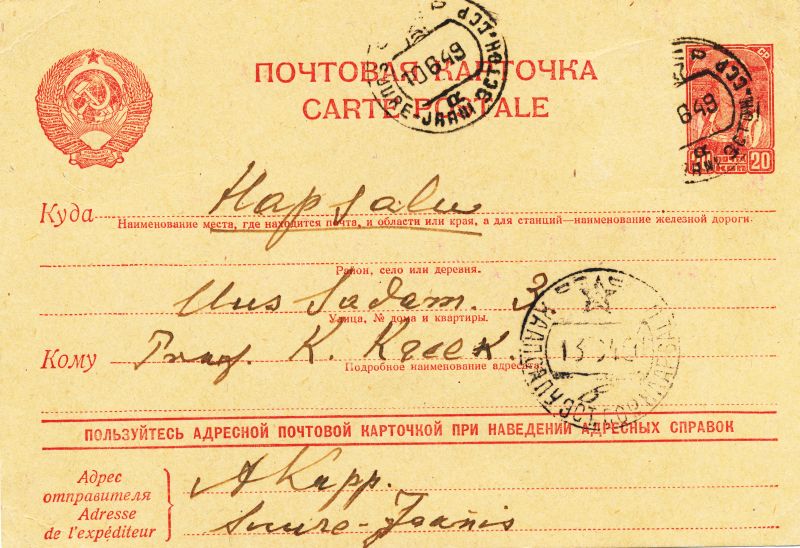 10 6 49
SUURE-JAANI ЭСТОН.ССР
ПОЧТОВАЯ КАРТОЧКА
CARTE POSTALE
6 49
20 20
Куда Hapsalu
Наименование места, где находится почта, и области или края, а для станций—наименование железной дороги.
Район, село или деревня.
Uus Sadam. 3
Улица, № дома и квартиры.
Кому Prof. K. Kreek.
Подробное наименование адресата.
ПОЛЬЗУЙТЕСЬ АДРЕСНОЙ ПОЧТОВОЙ КАРТОЧКОЙ ПРИ НАВЕДЕНИИ АДРЕСНЫХ СПРАВОК
Адрес
отправителя
Adresse
de l'expéditeur
A Kapp.
Suure-Jaanis